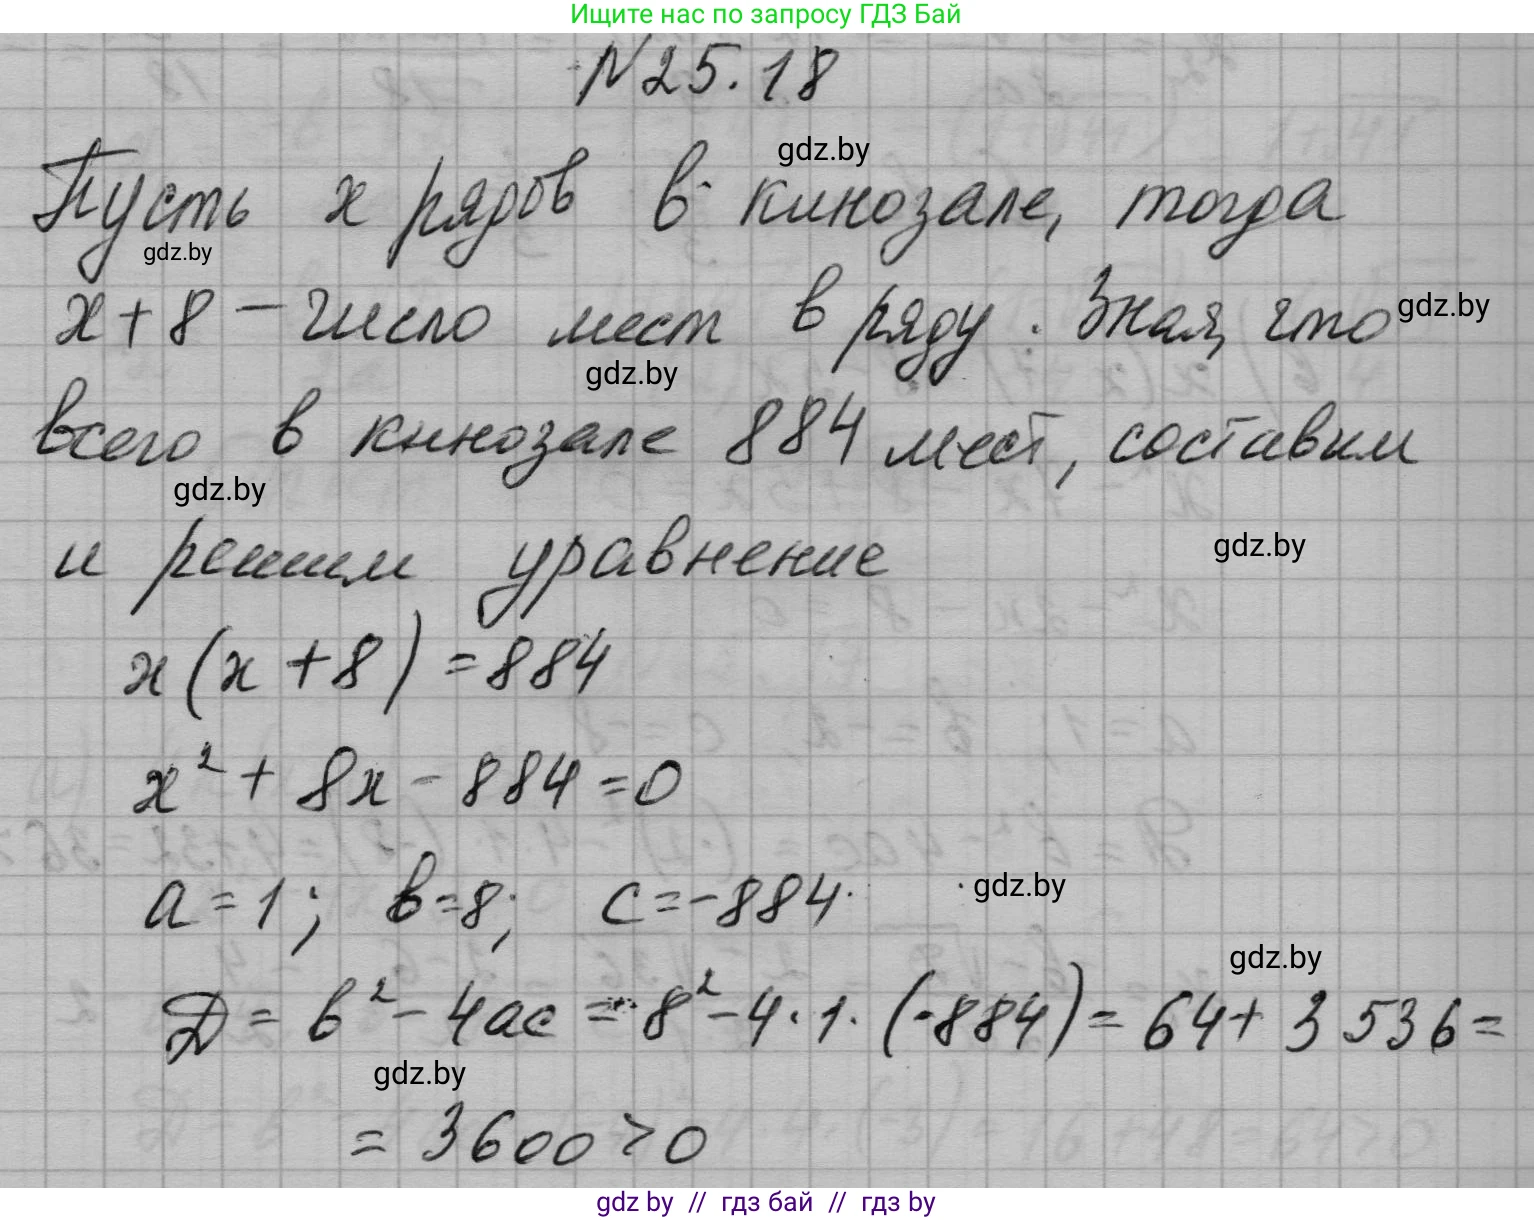 Ищите нас по запросу ГДЗ Бай
№25.18
gdz.by
Пусть x рядов в кинозале, тогда
gdz.by
x+8 – число мест в ряду. Зная, что
gdz.by
gdz.by
всего в кинозале 884 мест, составим
gdz.by
и решим уравнение
gdz.by
x(x+8)=884
x²+8x-884=0
a=1; b=8; c=-884.
gdz.by
gdz.by
Д = b²-4ac = 8²-4·1·(-884)= 64+3536=
gdz.by
= 3600>0
gdz by // гдз бай // гдз by